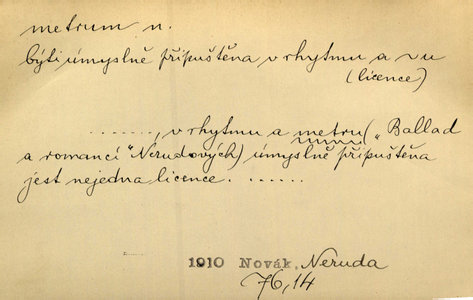 metrum n.
býti úmyslně připuštěna v rhytmu a ~u
(licence)
......., v rhytmu a metru („Ballad
a romancí“ Nerudových) úmyslně připuštěna
jest nejedna licence. ......
1910 Novák, Neruda
76,14